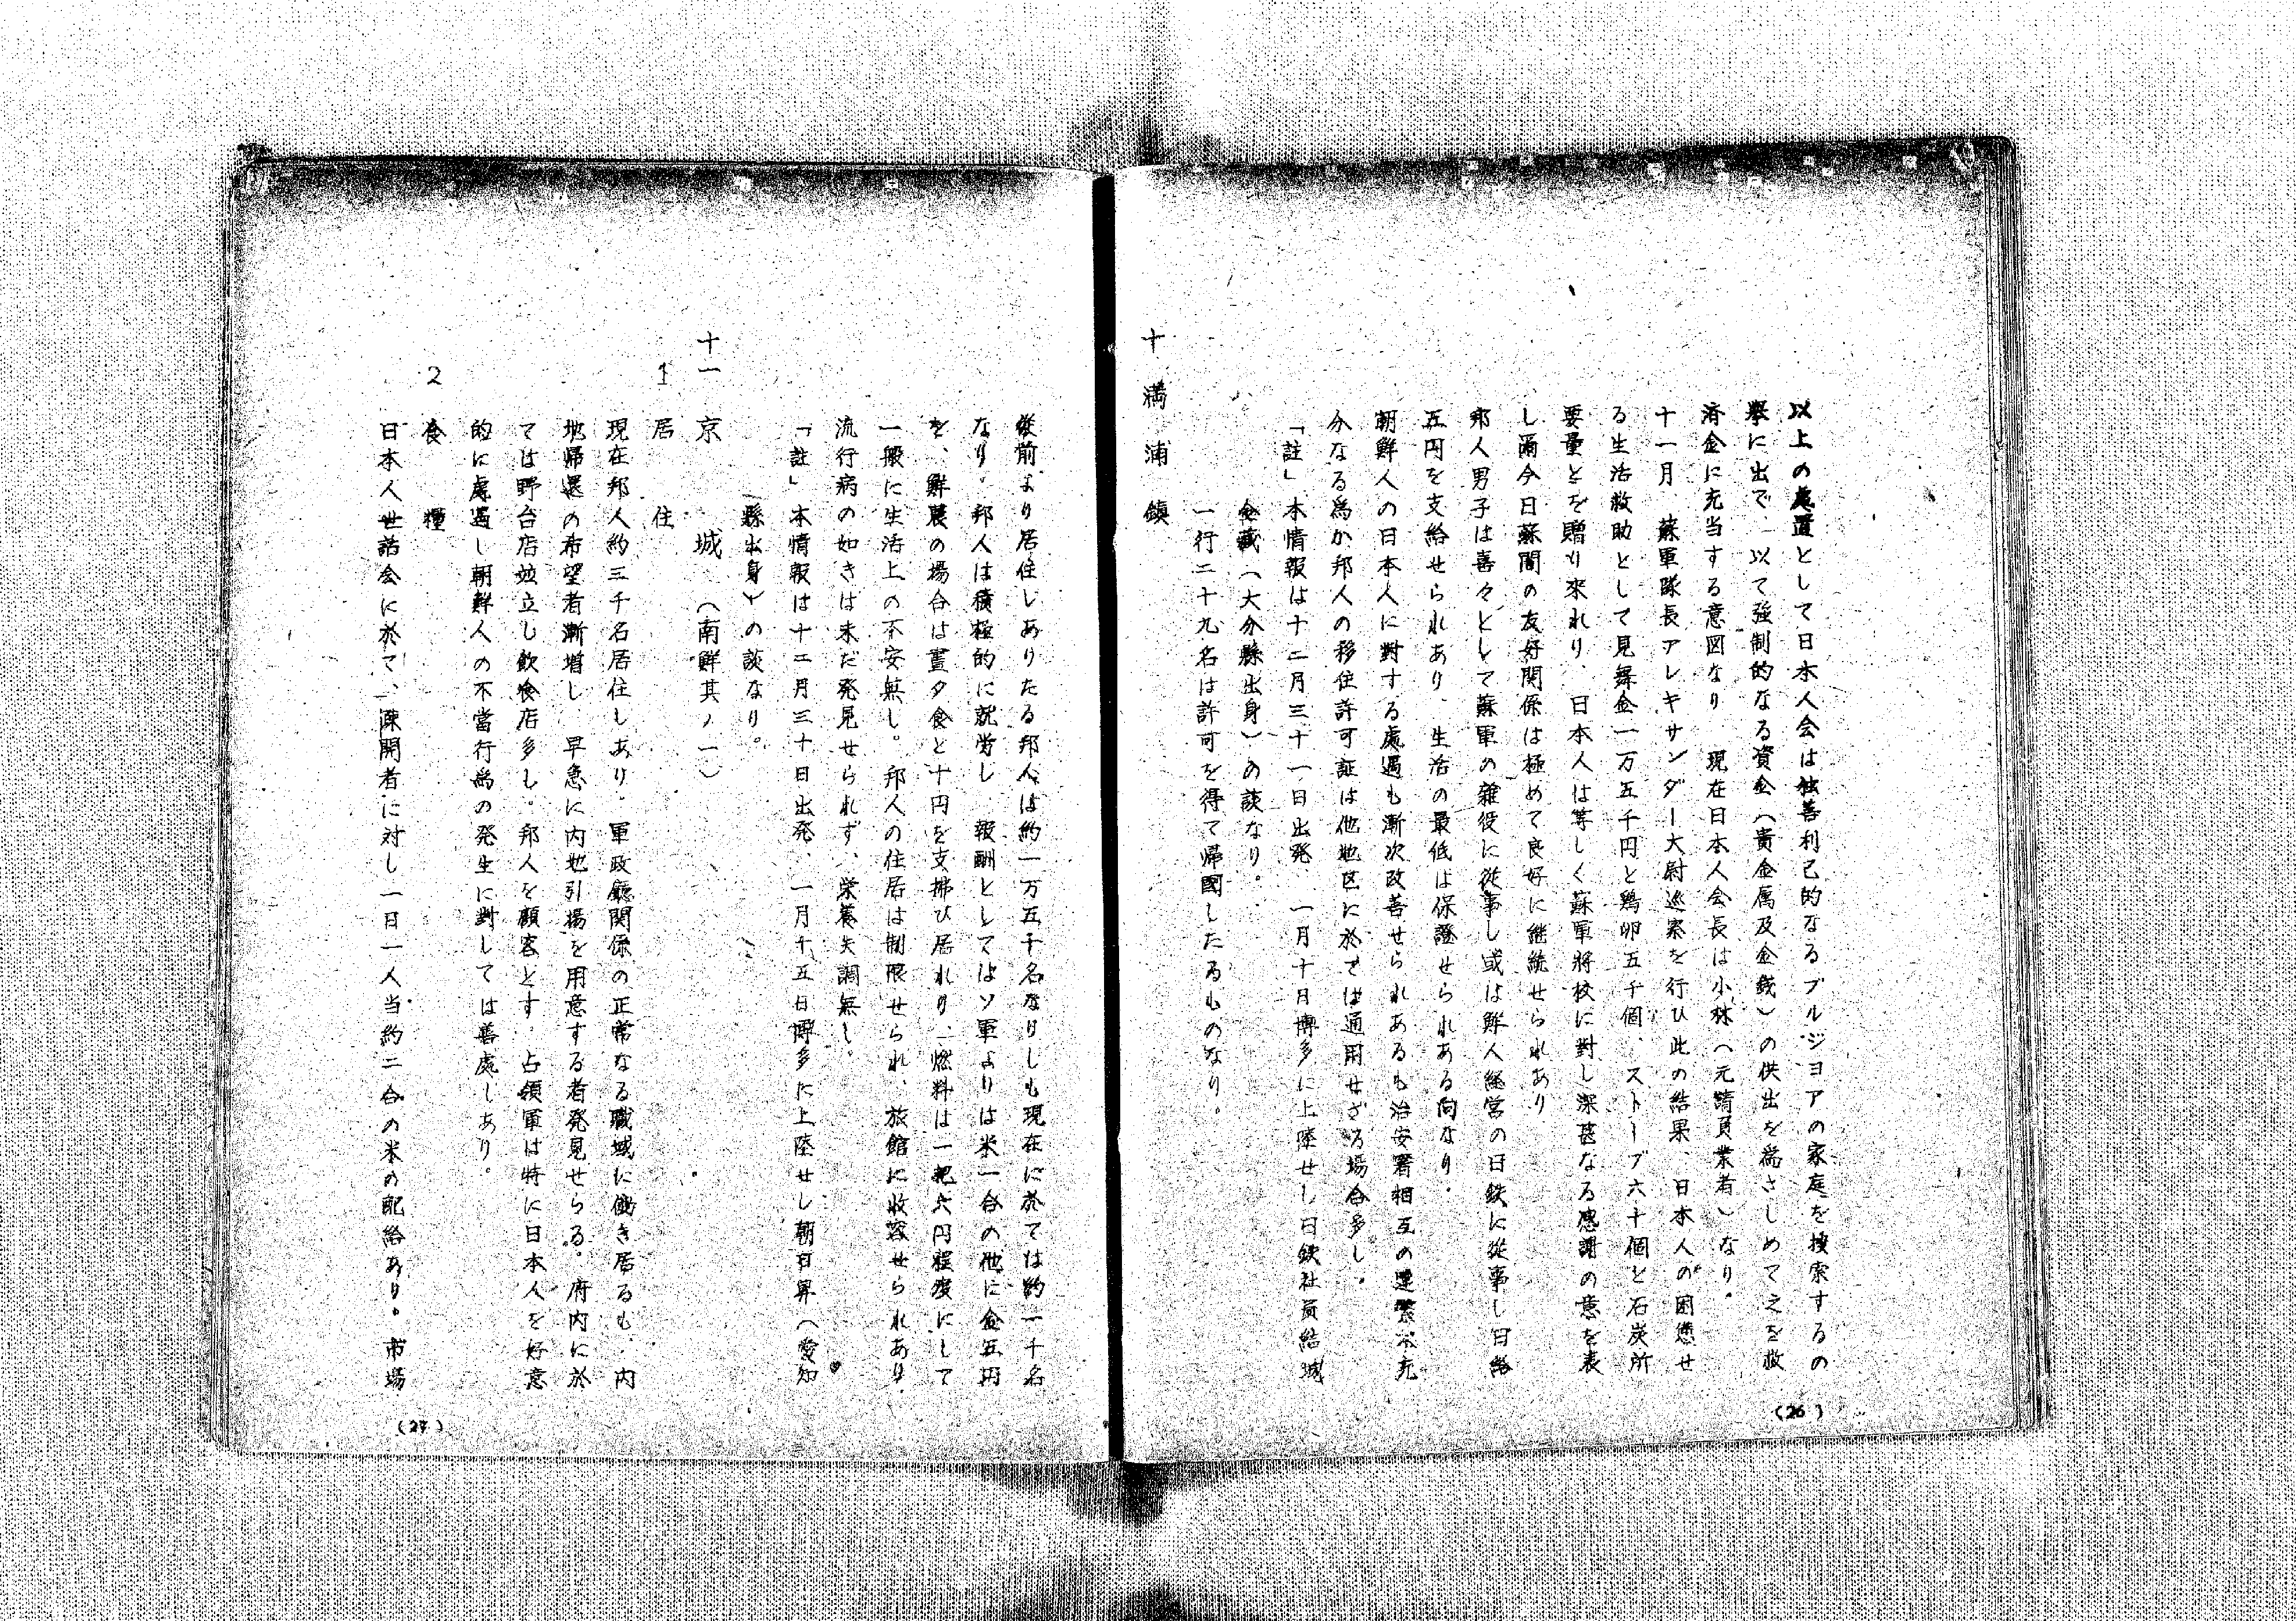 以上の處置として日本人会は独善利己的なるブルジヨアの家庭を捜索するの
挙に出で 以て強制的なる資金（貴金属及金銭）の供出を為さしめて之を救
済金に充当する意図なり 現在日本人会長は小林（元請負業者）なり。
十一月 蘇軍隊長アレキサンダー大尉巡察を行ひ此の結果、日本人の困憊せ
る生活救助として見舞金一万五千円と鶏卵五千個、ストーブ六十個と石炭所
要量とを贈り來れり、日本人は等しく蘇軍將校に對し深甚なる感謝の意を表
し爾今日蘇間の友好関係は極めて良好に継続せられあり
邦人男子は喜々として蘇軍の雑役に従事し或は鮮人経営の日鉄に従事し日給
五円を支給せられあり、生活の最低は保證せられある向なり。
朝鮮人の日本人に對する處遇も漸次改善せられあるも治安署相互の連繋不充
分なる為か邦人の移住許可証は他地区に於ては通用せざる場合多し。
「註」本情報は十二月三十一日出発、一月十日博多に上陸せし日鉄社員結城
金藏（大分縣出身）の談なり。
一行二十九名は許可を得て帰國したるものなり。
十 満浦鎮
(26)
従前より居住しありたる邦人は約一万五千名なりしも現在に於ては約一千名
なり。邦人は積極的に就労し 報酬としてはソ軍よりは米一合の他に金五円
を、鮮農の場合は晝夕食と十円を支拂ひ居れり、燃料は一把六円程度にして
一般に生活上の不安無し。邦人の住居は制限せられ、旅館に收容せられあり、
流行病の如きは未だ発見せられず、栄養失調無し。
「註」本情報は十二月三十日出発、一月十五日博多に上陸せし朝日昇（愛知
縣出身）の談なり。
十一 京城 （南鮮其ノ一）
1 居住
現在邦人約三千名居住しあり、軍政廳関係の正常なる職域に働き居るも、内
地帰還の希望者漸増し 早急に内地引揚を用意する者発見せらる。府内に於
ては野台店竝立し飲食店多し。邦人を顧客とす、占領軍は特に日本人を好意
的に處遇し朝鮮人の不當行為の発生に對しては善處しあり。
2 食糧
日本人世話会に於て、疎開者に対し一日一人当約二合の米の配給あり。市場
(27)